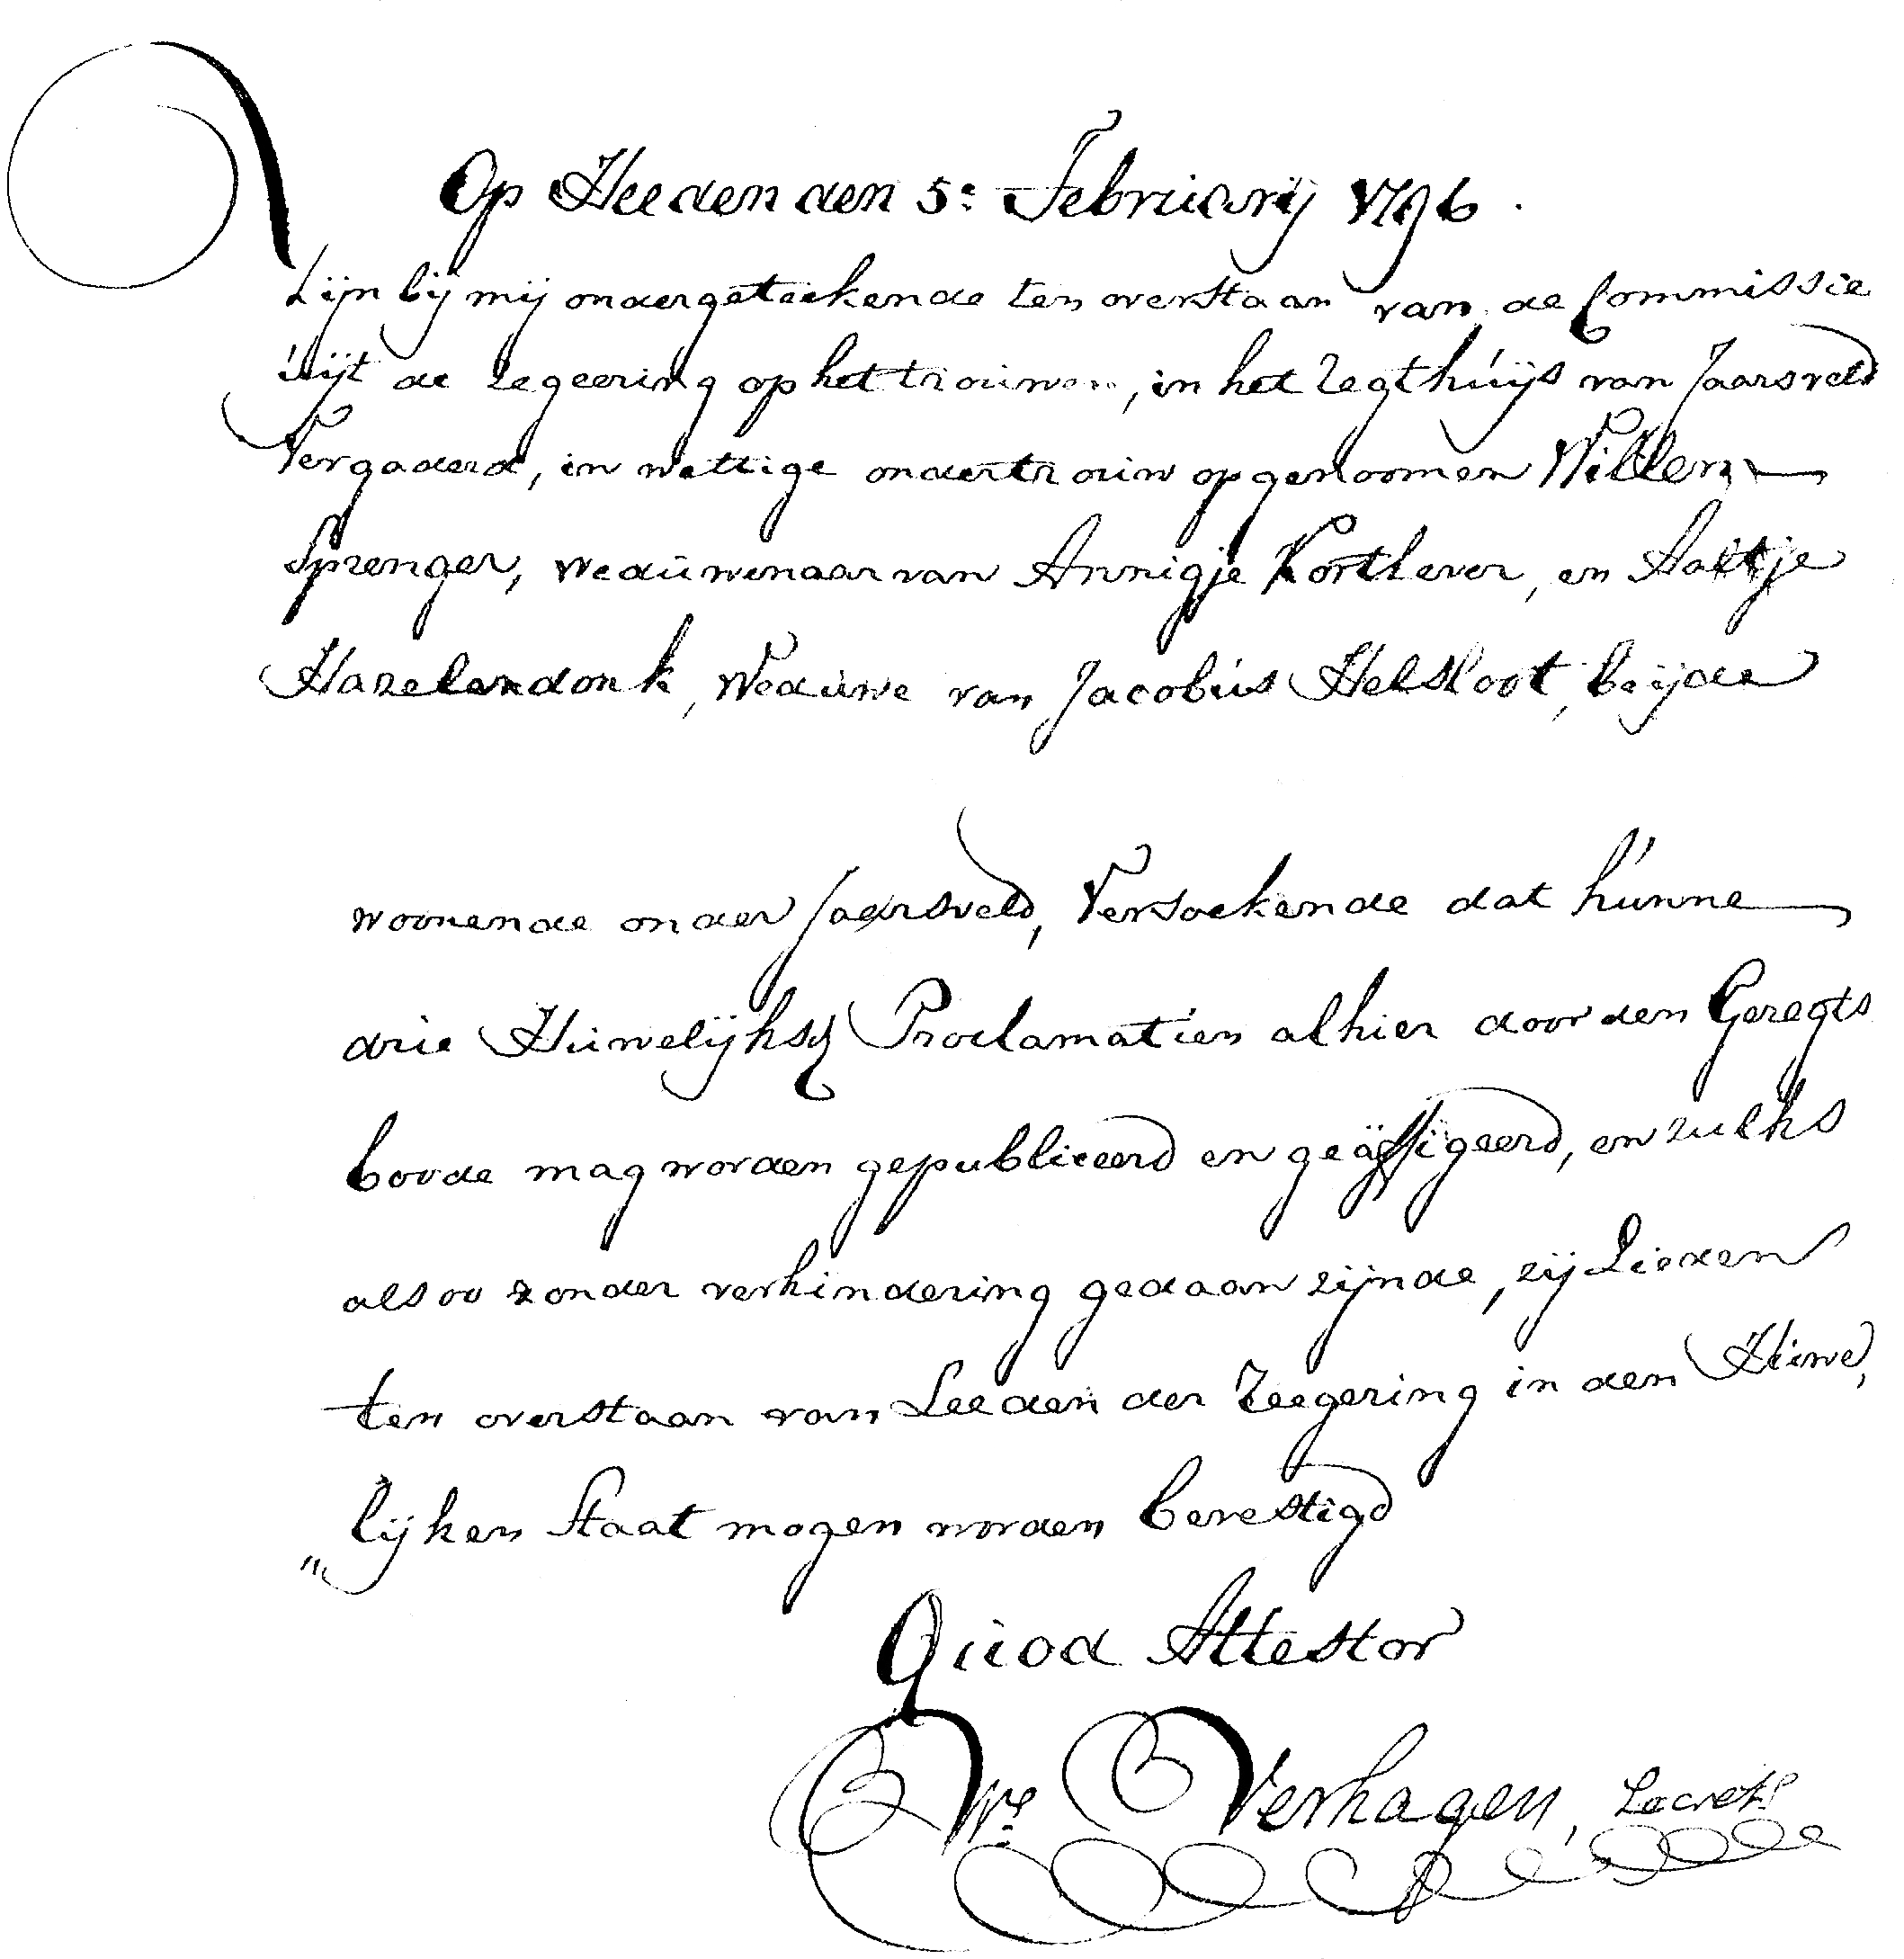 Op Heeden den 5e Februarij 1796.
Zijn bij mij ondergeteekende ten overstaan van de Commissie
uijt de regeering op het trouwen, in het Regthuijs van Jaarsveld
Vergaderd, in wettige ondertrouw opgenoomen Willem
Sprenger, weduwenaar van Annigje Kortlever, en Aaltje
Hazelendonk, Weduwe van Jacobus Helsloot, beijde
woonende onder Jaarsveld, Versoekende dat hunne
drie Huwelijksche Proclamatien alhier door den Geregts
boode mag worden gepubliceerd en geäffigeerd, en zulks
alsoo zonder verhindering gedaan zijnde, zij Lieden
ten overstaan van Leeden der Reegering in den Huwe,
„lijken Staat mogen worden bevestigd
Quod Attestor
Wm Verhagen, Secrets